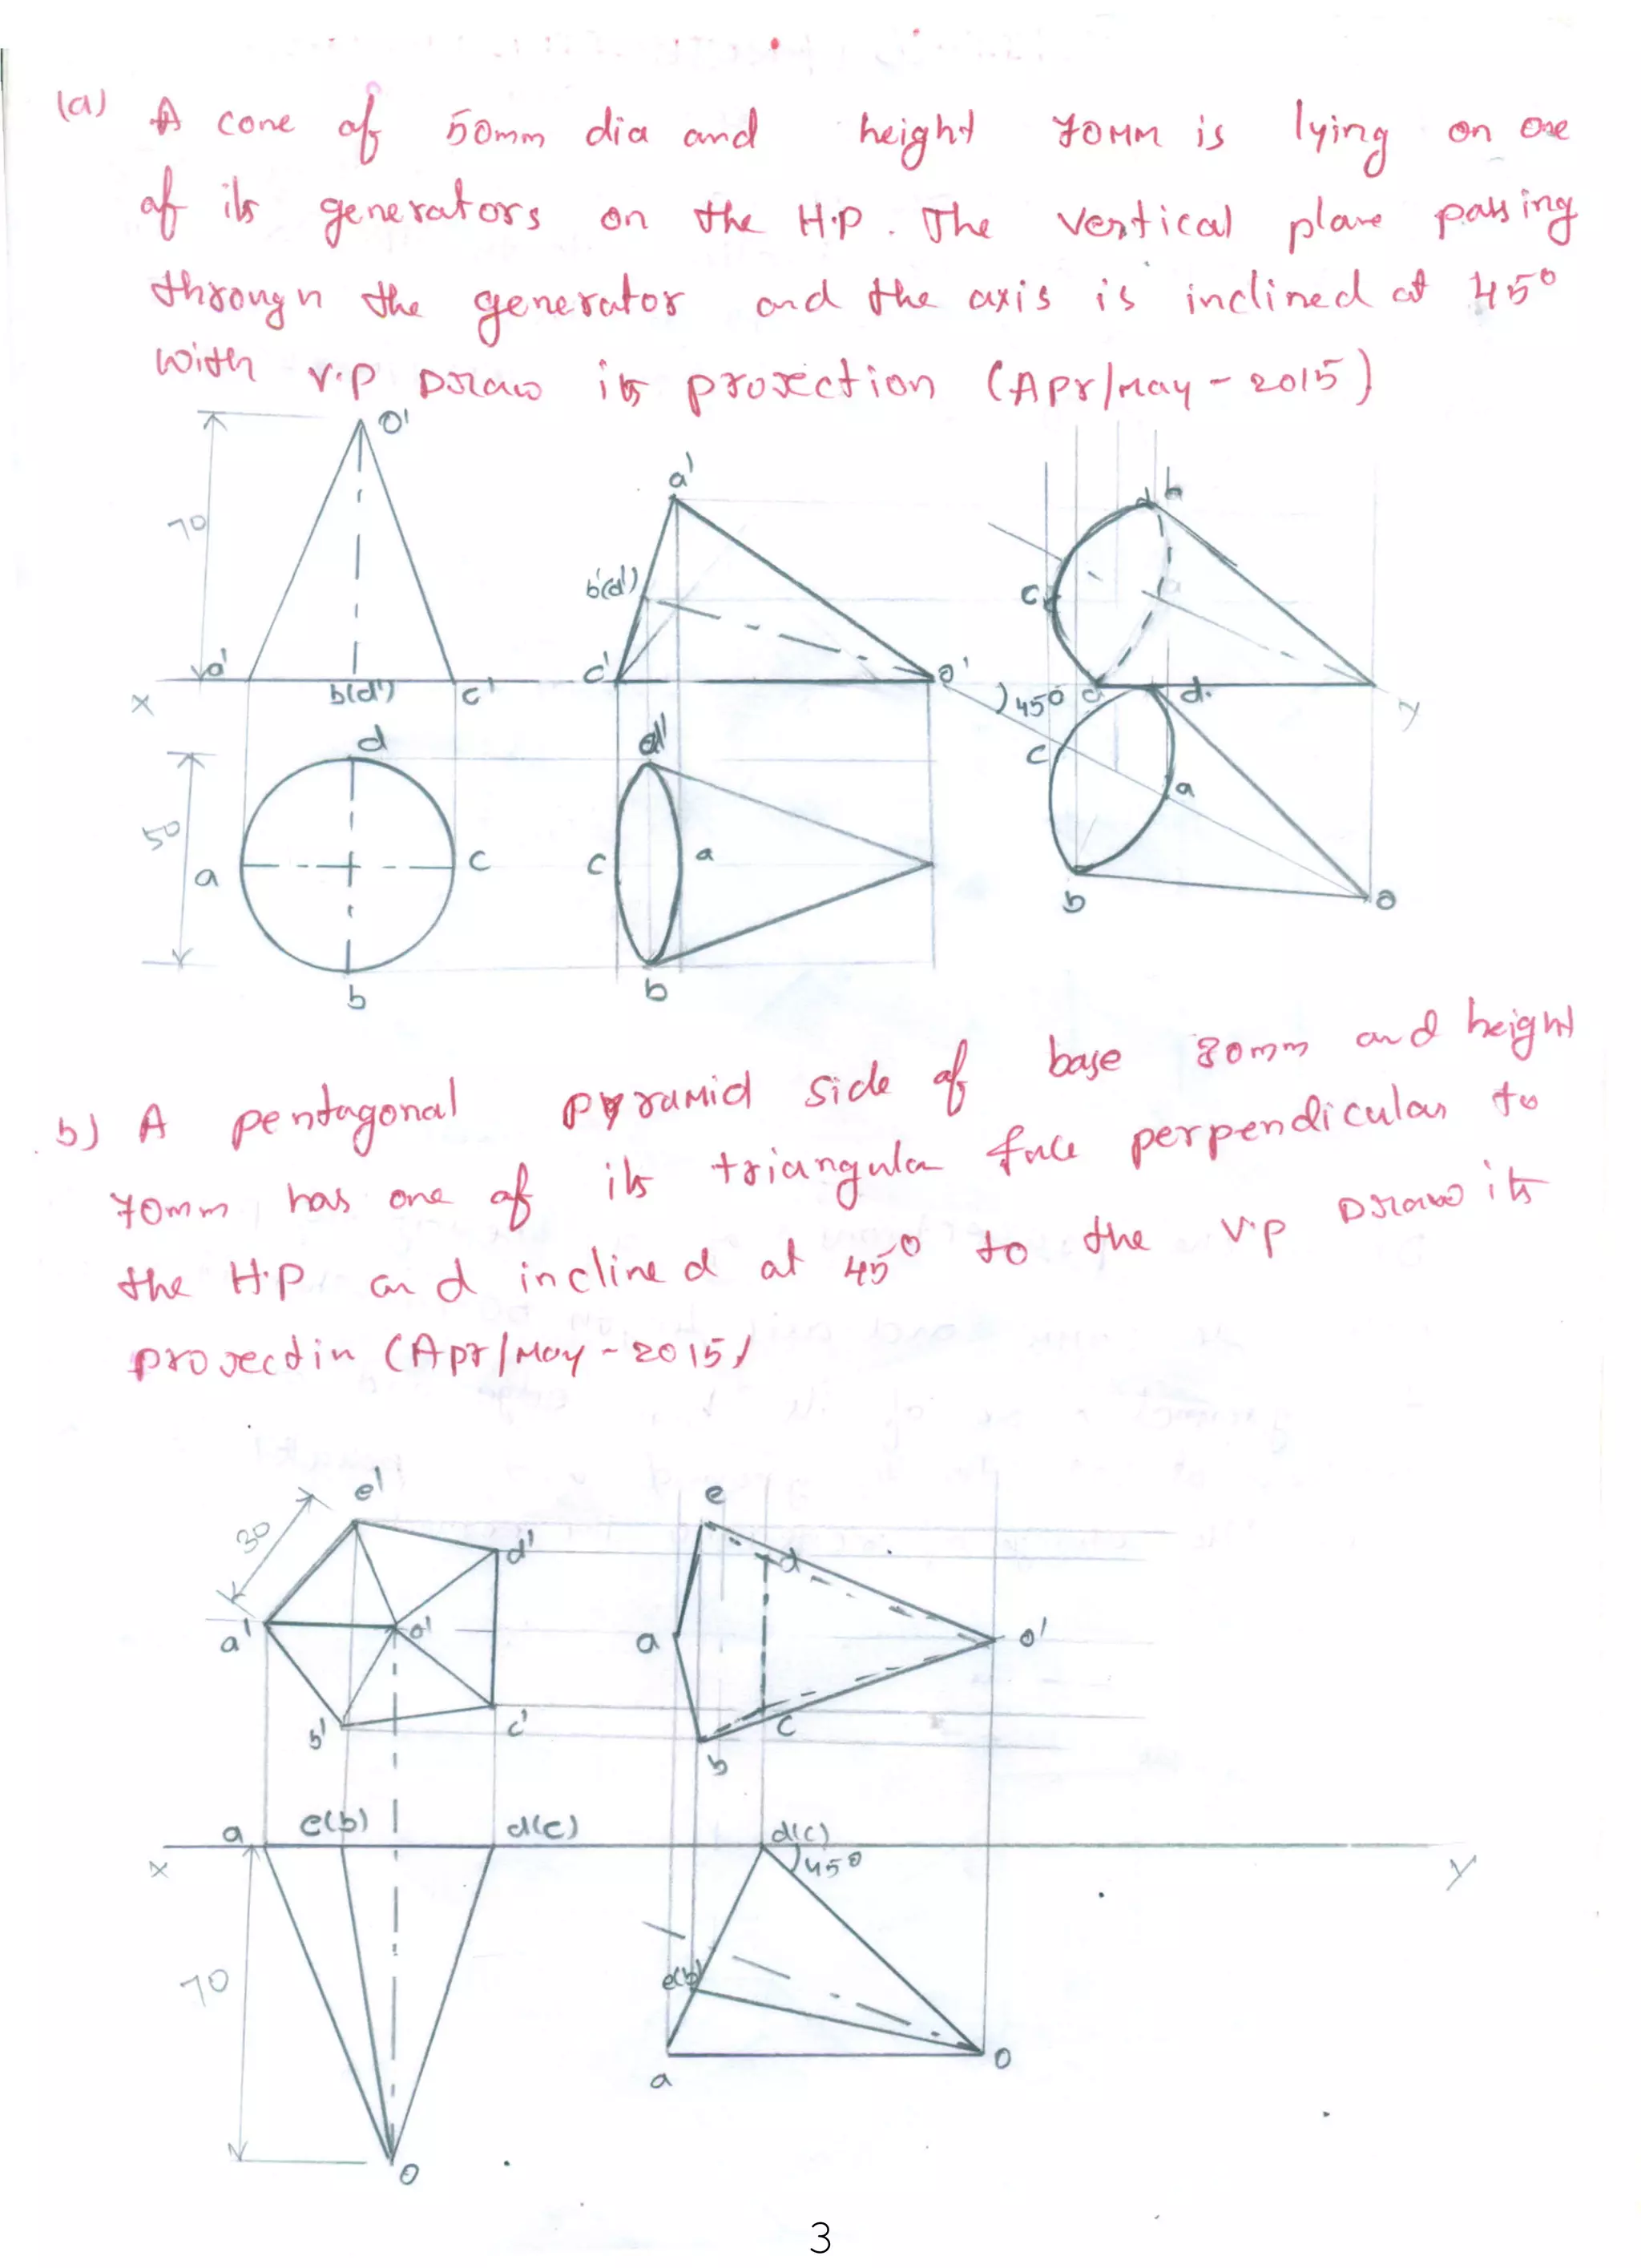 (a) A cone of 50mm dia and height 70MM is lying on one
of its generators on the H.P. The Vertical plane passing
throughn the generator and the axis is inclined at 45°
with V.P Draw its projection (Apr/May-2015)
O'
70
a'
b(d')
c'
x
d
50
a
c
b
a'
b'(d')
c'
o'
d'
c
a
b
d
b
c
a
45°
d
d.
y
c
a
b
o
b) A pentagonal pyramid side of base 30mm and height
70mm has one of its triangular face perpendicular to
the H.P and inclined at 45° to the V.P Draw its
projectin (Apr/May-2015)
e'
30
d'
a'
o'
b'
c'
e
d
a
o'
c
b
a
e(b)
d(c)
x
d(c)
45°
y
70
e(b)
a
o
O
3